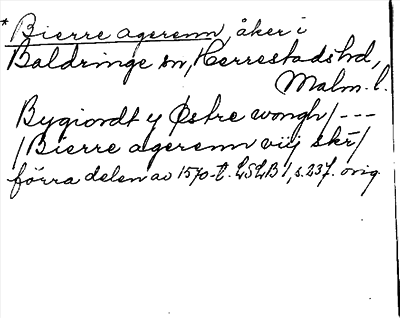 * Bierre agerenn, åker i
Baldringe sn, Herrestads hd,
Malm. l.
Bygiordt y Østre wongh / ---
/ Bierre agerenn viij skr /
förra delen av 1570-t. LSLB 1, s. 237. orig.